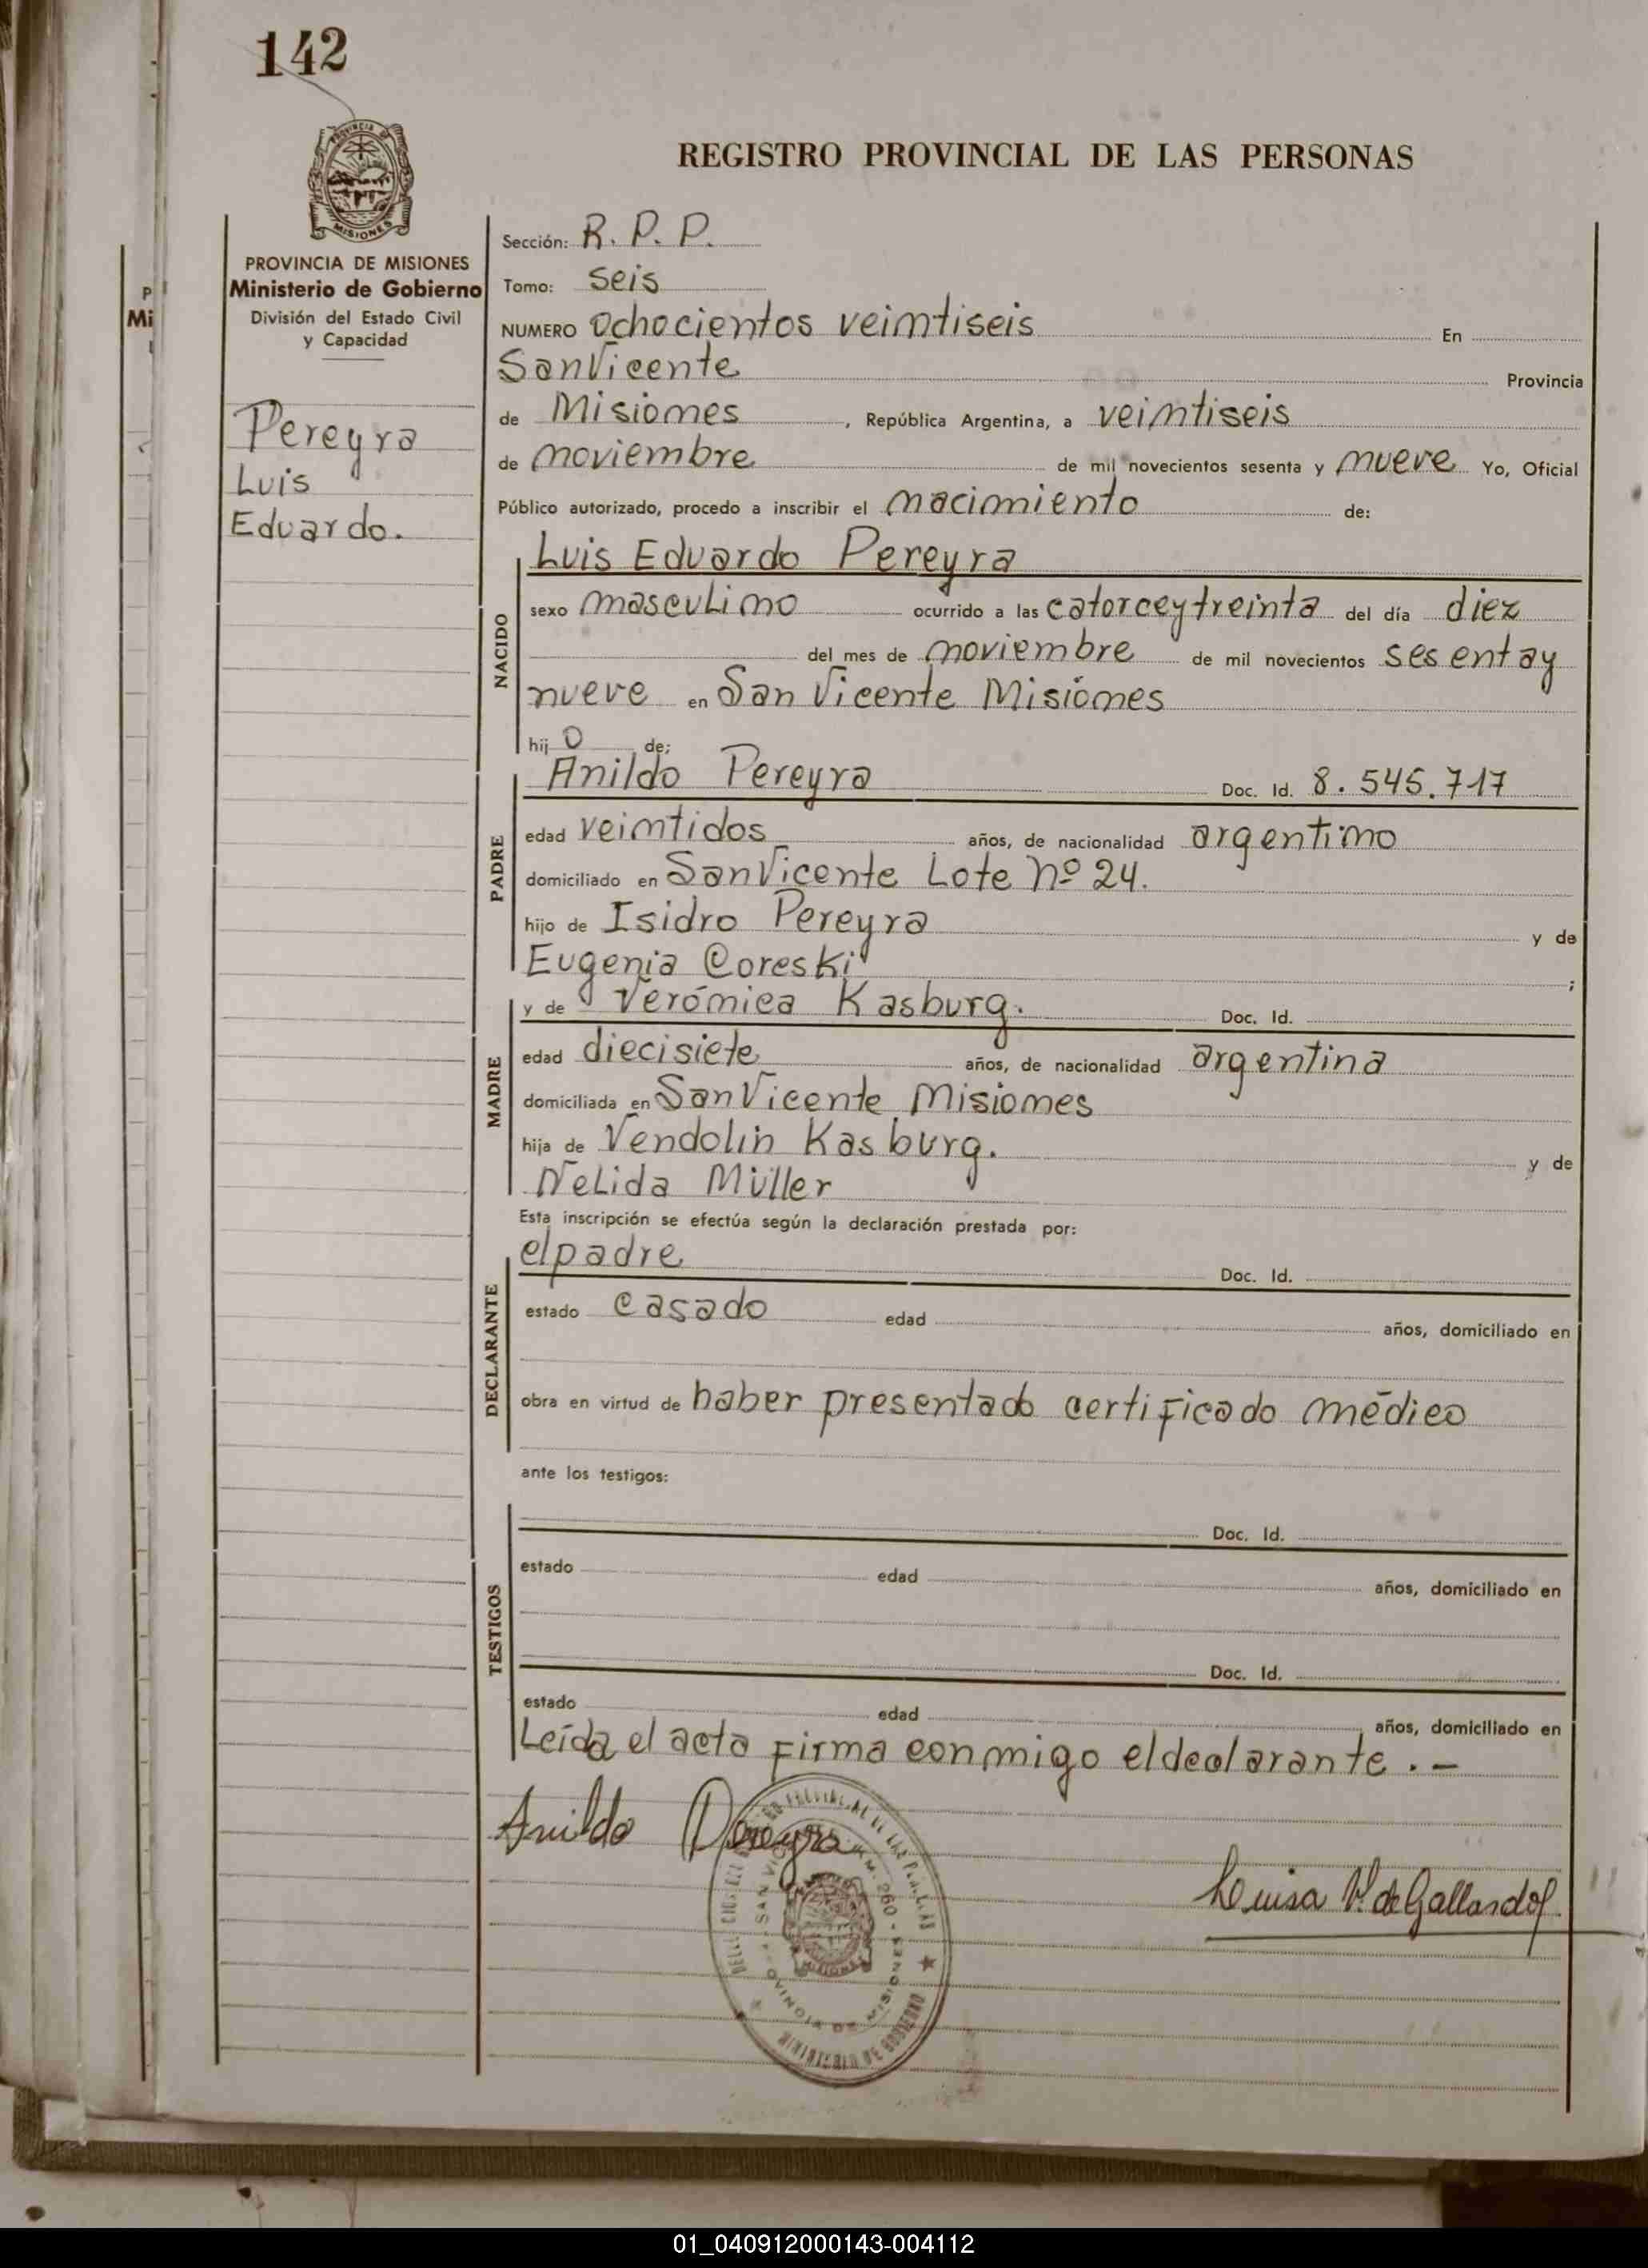 142
PROVINCIA DE
MISIONES
REGISTRO PROVINCIAL DE LAS PERSONAS
PROVINCIA DE MISIONES
Ministerio de Gobierno
División del Estado Civil
y Capacidad
Pereyra
Luis
Eduardo.
Sección: R. P. P.
Tomo: seis
NUMERO ochocientos veintiseis En
San Vicente Provincia
de Misiones, República Argentina, a veintiseis
de noviembre de mil novecientos sesenta y nueve Yo, Oficial
Público autorizado, procedo a inscribir el nacimiento de:
NACIDO
Luis Eduardo Pereyra
sexo masculino ocurrido a las catorce y treinta del día diez
del mes de noviembre de mil novecientos sesenta y
nueve en San Vicente Misiones
hijo de:
PADRE
Anildo Pereyra Doc. Id. 8.545.717
edad veintidos años, de nacionalidad argentino
domiciliado en San Vicente Lote Nº 24.
hijo de Isidro Pereyra y de
Eugenia Coreski ;
MADRE
y de Verónica Kasburg. Doc. Id.
edad diecisiete años, de nacionalidad argentina
domiciliada en San Vicente Misiones
hija de Vendolin Kasburg. y de
Nelida Müller
Esta inscripción se efectúa según la declaración prestada por:
DECLARANTE
el padre Doc. Id.
estado casado edad años, domiciliado en
obra en virtud de haber presentado certificado médico
ante los testigos:
TESTIGOS
Doc. Id.
estado edad años, domiciliado en
Doc. Id.
estado edad años, domiciliado en
Leída el acta firma conmigo el declarante . –
Anildo Pereyra
Luisa V. de Gallardo
P
Mi
01_040912000143-004112